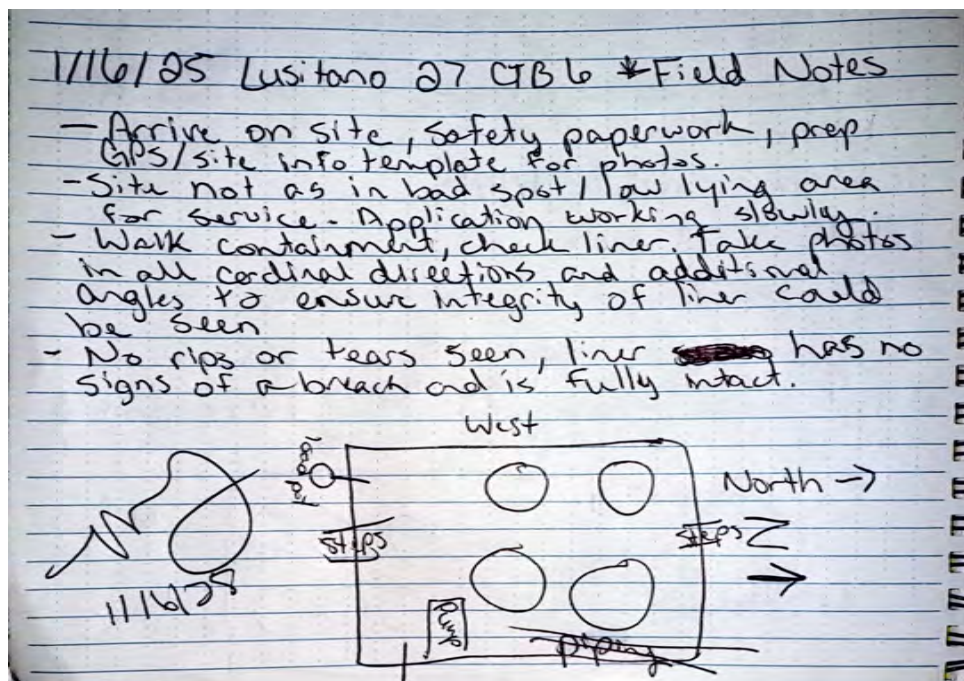 1/16/25 Lusitano 27 CTB 6 *Field Notes
- Arrive on site, safety paperwork, prep
GPS/site info template for photos.
- Site not as in bad spot/low lying area
for service. Application working slowly.
- Walk containment, check liner. Take photos
in all cardinal directions and additional
angles to ensure integrity of liner could
be seen
- No rips or tears seen, liner has no
signs of a breach and is fully intact.
West
load pot
North ->
Steps
Steps
Z
1/16/25
Pump
piping